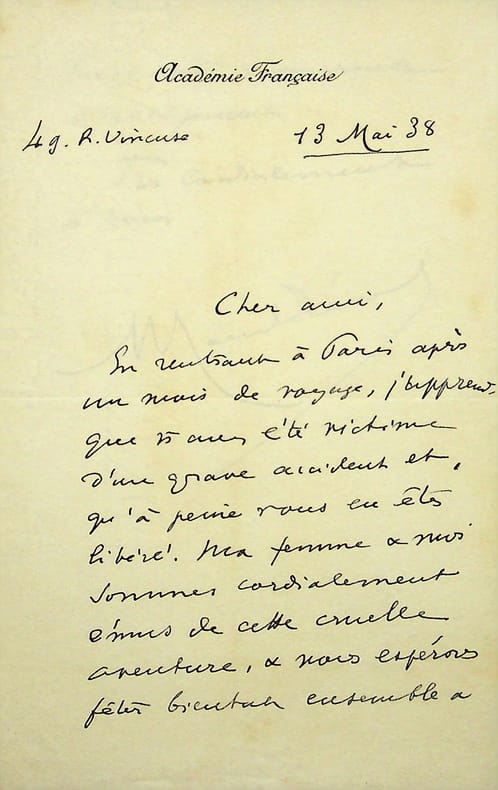 Académie Française
49. R. Vineuse
13 Mai 38
Cher ami,
En rentrant à Paris après
un mois de voyage, j'apprends
que vs avez été victime
d'un grave accident et,
qu'à peine vous en êtes
libéré. Ma femme & moi
sommes cordialement
émus de cette cruelle
aventure, & nous espérons
fêter bientôt ensemble